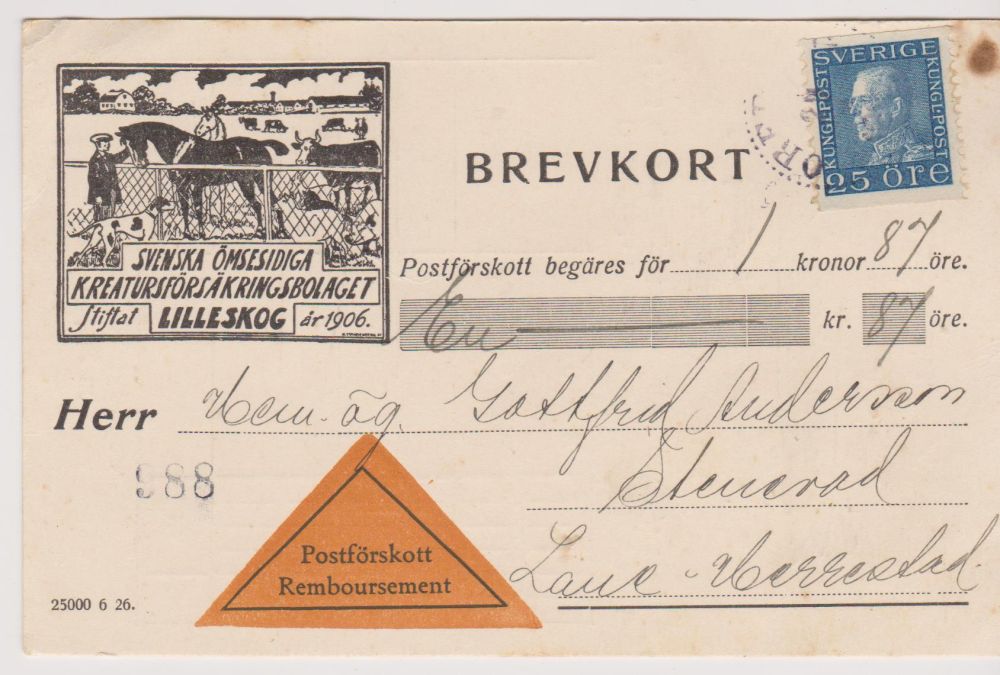 BREVKORT
SVERIGE
KUNGL·POST
KUNGL·POST
25 öre
SVENSKA ÖMSESIDIGA
KREATURSFÖRSÄKRINGSBOLAGET
Stiftat LILLESKOG år 1906.
Postförskott begäres för 1 kronor 87 öre.
En kr. 87 öre.
Herr Hem. äg. Gottfrid Andersson
Stenevad
Lane-Herrestad
988
Postförskott
Remboursement
25000 6 26.